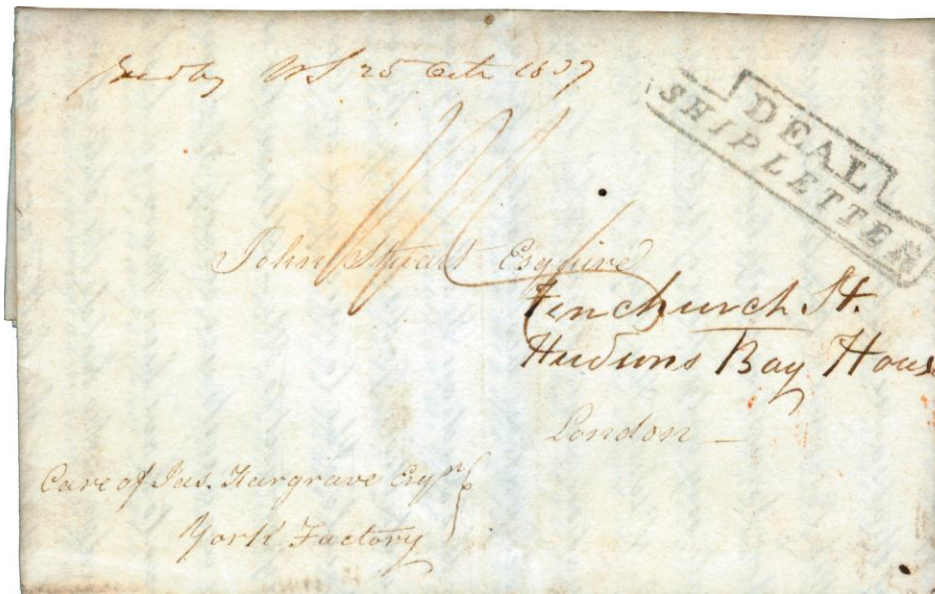 by 25 Octr 1837
DEAL
SHIP LETTER
John Stuart Esquire
Fenchurch St.
Hudsons Bay House
London
Care of Jas. Hargrave Esqr.
York Factory